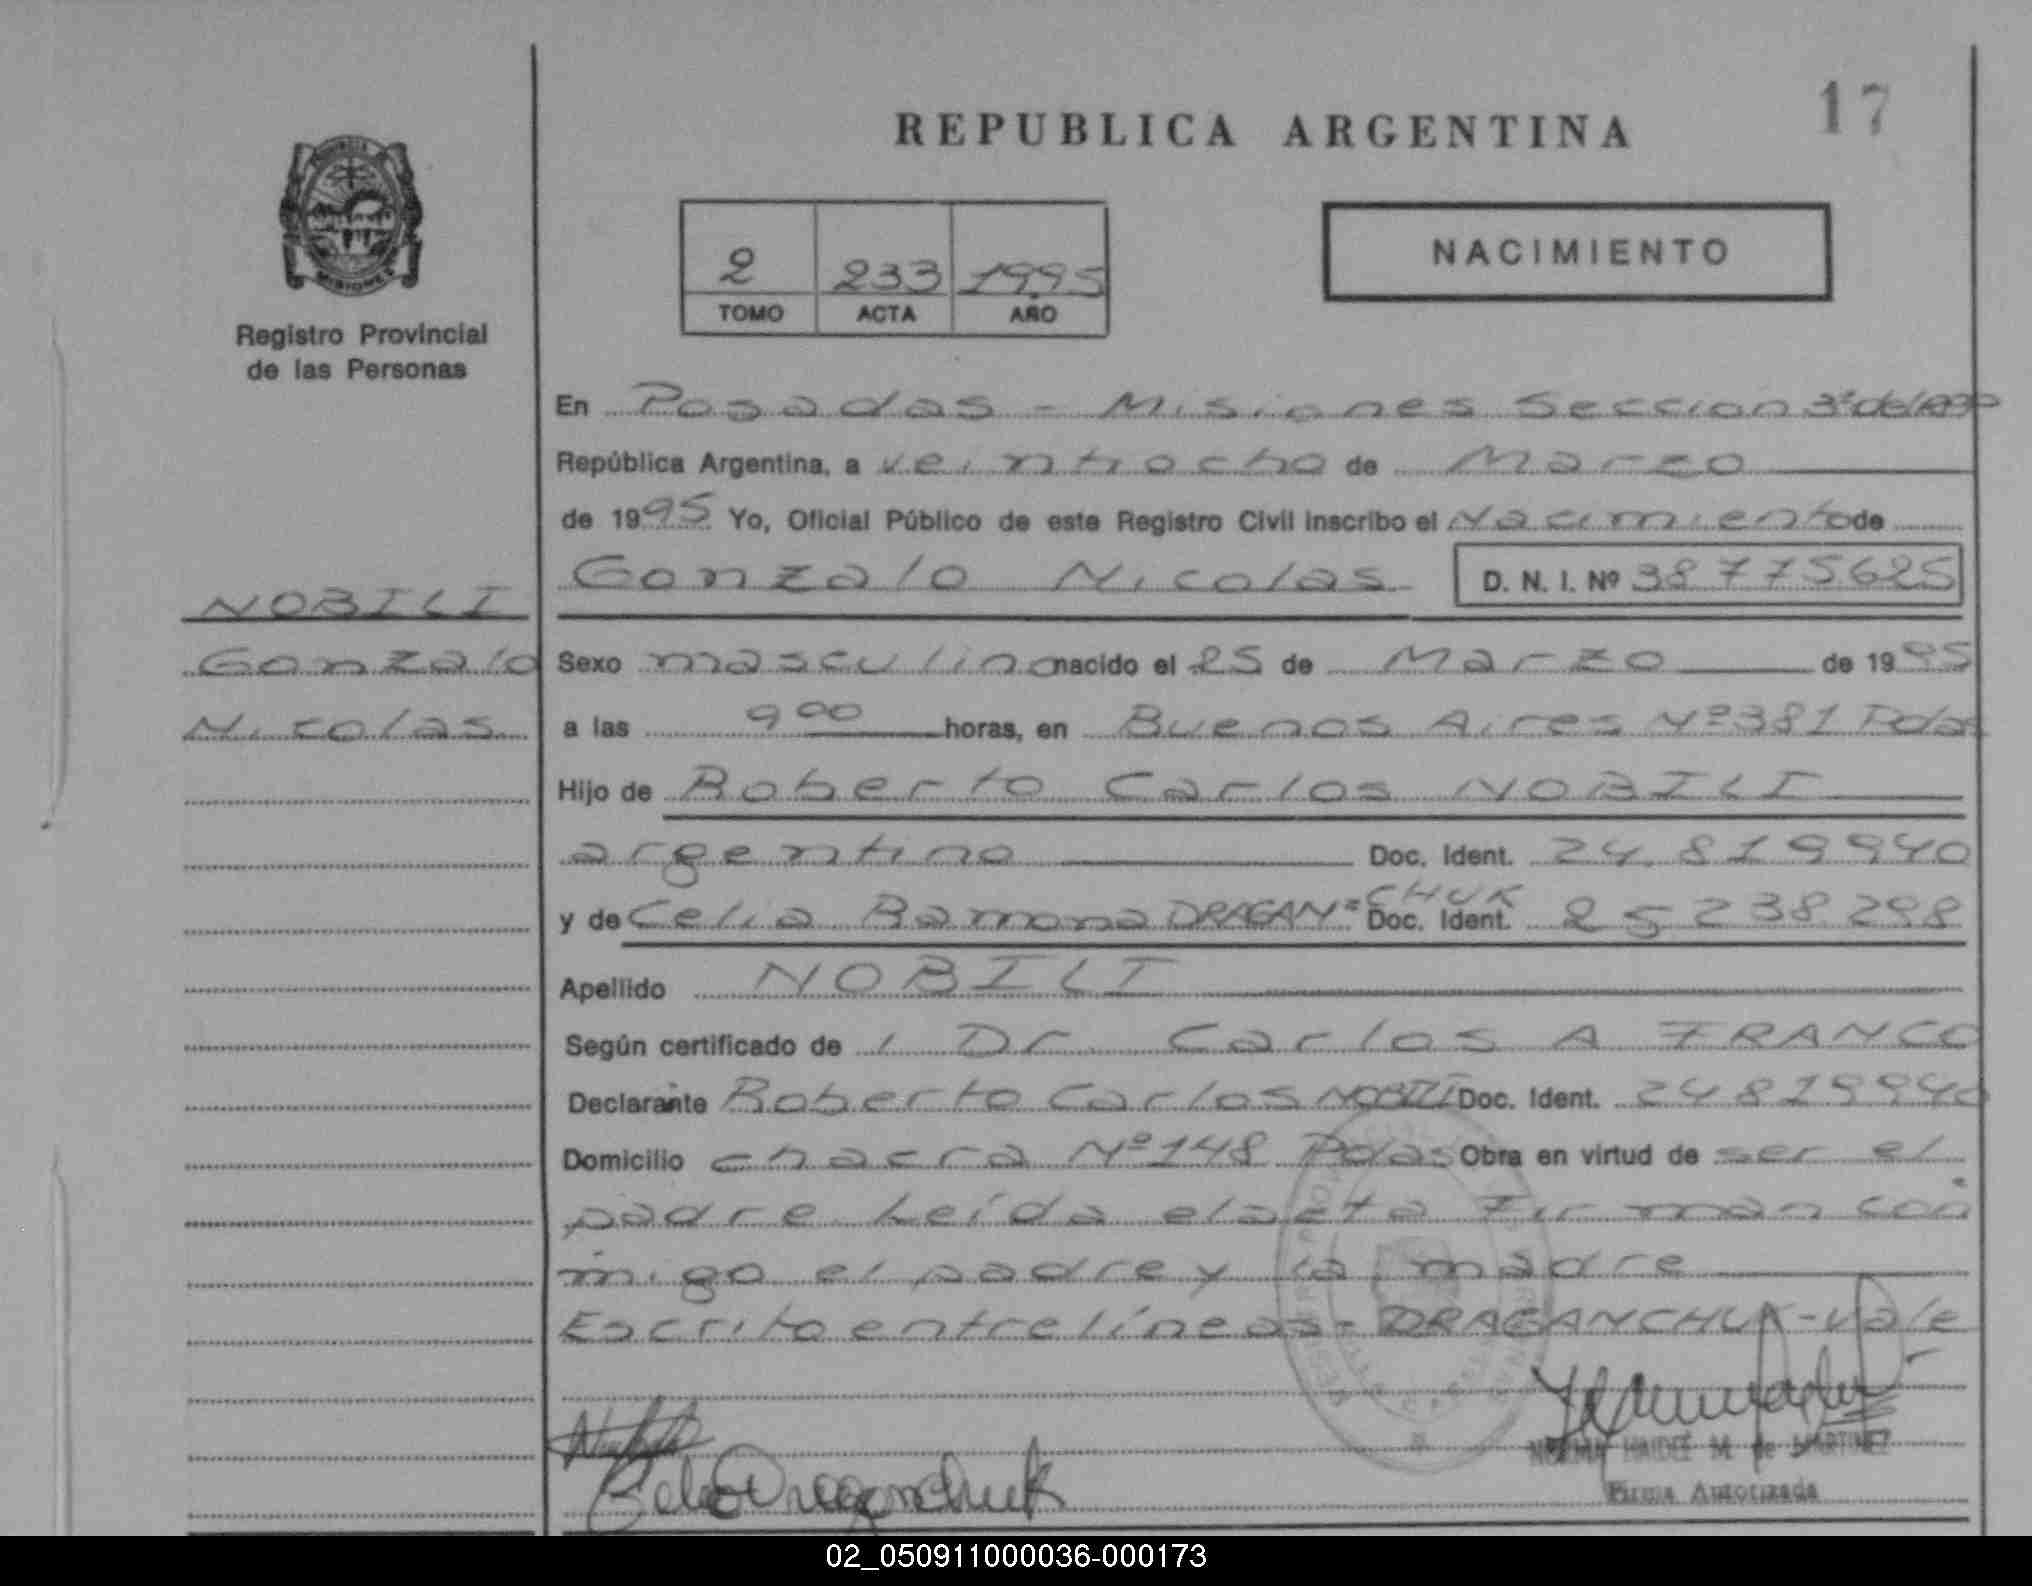 REPUBLICA ARGENTINA
17
PROVINCIA
MISIONES
Registro Provincial
de las Personas
2 233 1995
TOMO ACTA AÑO
NACIMIENTO
En Posadas - Misiones Sección 3ª
República Argentina, a veintiocho de Marzo
de 1995 Yo, Oficial Público de este Registro Civil inscribo el Nacimiento de
Gonzalo Nicolas D. N. I. Nº 38775625
NOBILI
Gonzalo
Nicolas
Sexo masculino nacido el 25 de Marzo de 1995
a las 9 00 horas, en Buenos Aires Nº 381 Pdas
Hijo de Roberto Carlos NOBILI
argentino Doc. Ident. 24.819940
y de Celia Ramona DRAGAN=CHUK Doc. Ident. 25238298
Apellido NOBILI
Según certificado de Dr. Carlos A FRANCO
Declarante Roberto Carlos NOBILI Doc. Ident. 24819940
Domicilio chacra Nº 148 Pdas Obra en virtud de ser el
padre Leída el acta Firman con
migo el padre y la madre
Escrito entre líneas - DRAGANCHUK - Vale
Draganchuk
NORMA HAIDEE M. de MARTINEZ
Firma Autorizada
02_050911000036-000173